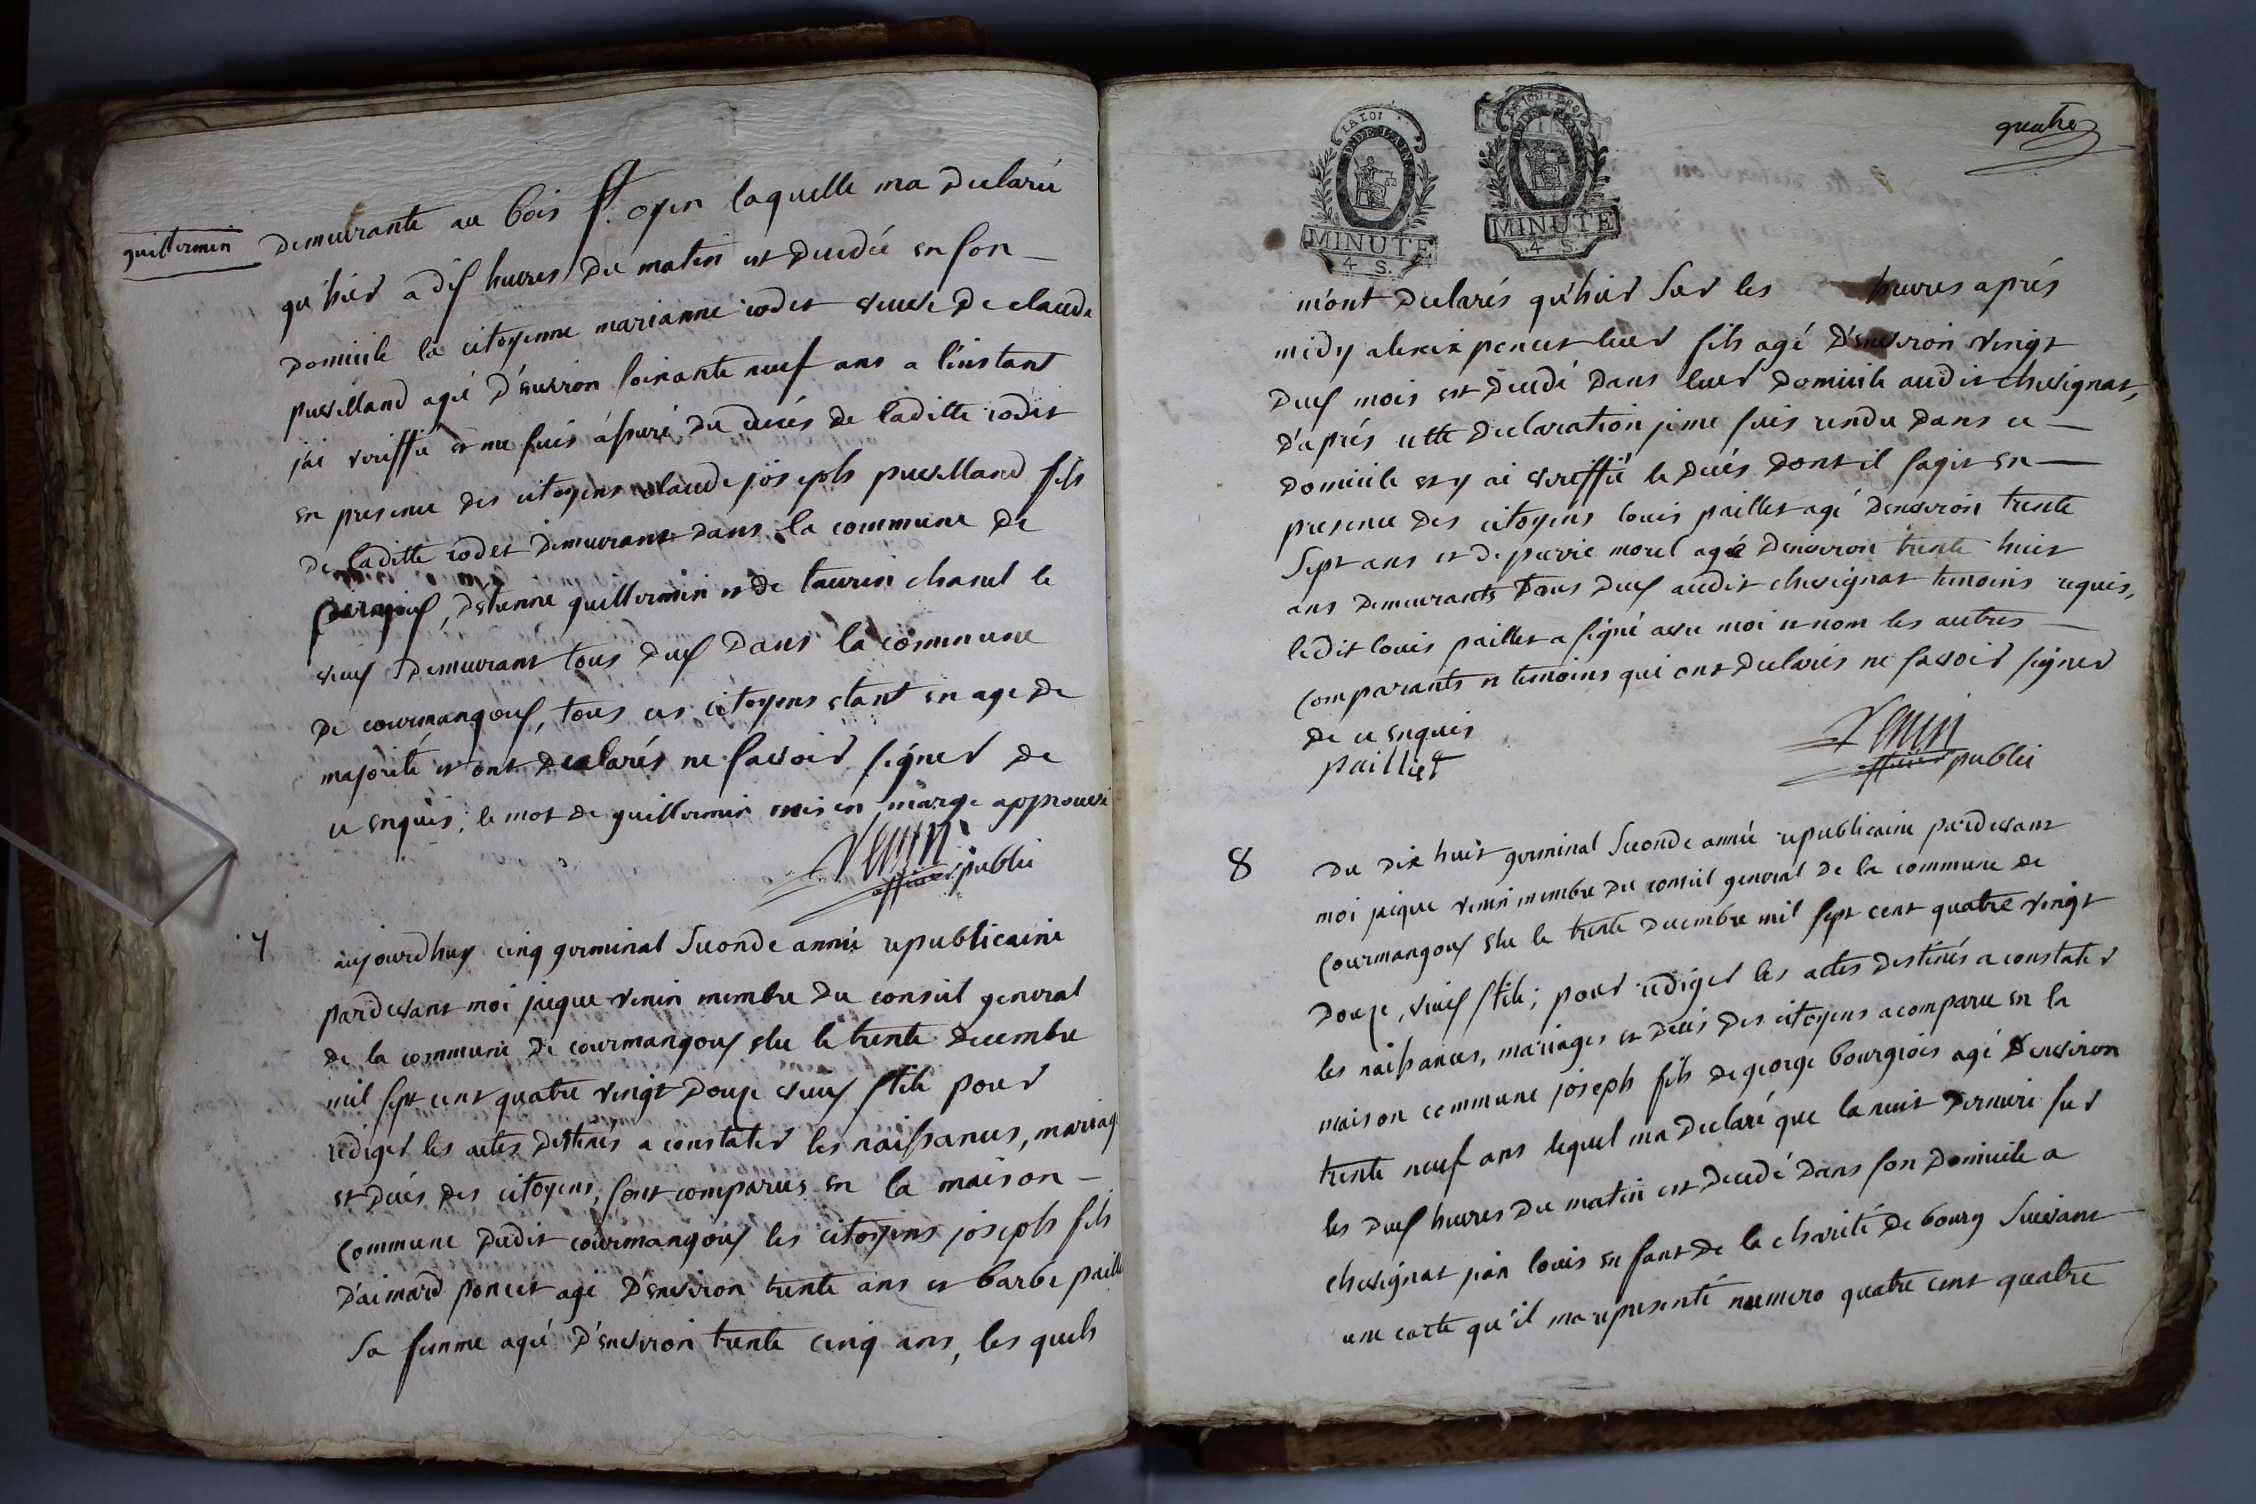 guillermin
demeurante au bois St. oyen laquelle ma declaré
qu'hier a dix heures du matin est decedée en son
domicile la citoyenne marianne rodet veuve de claude
puvilland agée d'environ soixante neuf ans a l'instant
j'ai veriffié et me suis assuré du deces de laditte rodet
en presence des citoyens claude joseph puvilland fils
de laditte rodet demeurant dans la commune de
d'etienne guillermin et de taurin chanel le
vieux demeurant tous deux dans la commune
de courmangoux, tous ces citoyens etant en age de
majorité et ont declarés ne savoir signer de
ce enquis; le mot de guillermin mis en marge approuvé
venin
officier public
7
aujourdhuy cinq germinal seconde année republicaine
pardevant moi jacque venin membre du conseil general
de la commune de courmangoux elu le trente decembre
mil sept cent quatre vingt douze vieux stile pour
rediger les actes destinés a constater les naissances, mariag
et decés des citoyens, sont comparus en la maison
commune dudit courmangoux les citoyens joseph fils
d'aimard poncet agé d'environ trente ans et barbe paill
sa femme agée d'environ trente cinq ans, les quels
LA LOI
MINUTE
4 S.
MINUTE
4 S.
quatre
m'ont declarés qu'hier sur les heures aprés
midy alexix poncet leur fils agé d'environ vingt
deux mois est decedé dans leur domicile audit chevignat,
d'aprés cette declaration je me suis rendu dans ce
domicile et y ai veriffié le decés dont il sagit en
presence des citoyens louis paillet agé denviron trente
sept ans et de pierre morel agé denviron trente huit
ans demeurants tous deux audit chevignat temoins requis,
ledit louis paillet a signé avec moi et nom les autres
comparants et temoins qui ont declarés ne savoir signer
de ce enquis
pailliet
venin
officier public
8
du dix huit germinal seconde année republicaine pardevant
moi jacque venin membre du conseil general de la commune de
courmangoux elu le trente decembre mil sept cent quatre vingt
douze, vieux stile; pour rediger les actes destinés a constater
les naissances, mariages et decés des citoyens a comparu en la
maison commune joseph fils de george bourgeois agé denviron
trente neuf ans lequel ma declaré que la nuit derniere sur
les deux heures du matin est decedé dans son domicile a
chevignat jean louis enfant de la charité de bourg suivant
une carte qu'il ma representé numero quatre cent quatre